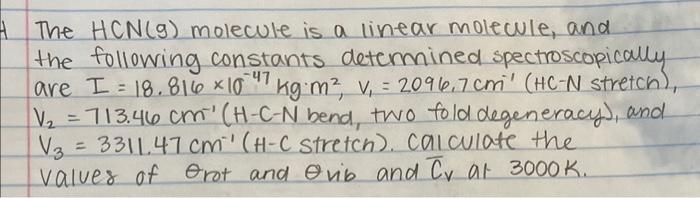 1 The HCN(g) molecule is a linear molecule, and
the following constants determined spectroscopically
are I = 18.816 ×10⁻⁴⁷ kg·m², V₁ = 2096.7 cm⁻¹ (HC-N stretch),
V₂ = 713.46 cm⁻¹ (H-C-N bend, two fold degeneracy), and
V₃ = 3311.47 cm⁻¹ (H-C stretch). calculate the
values of θrot and θvib and C̅v at 3000K.